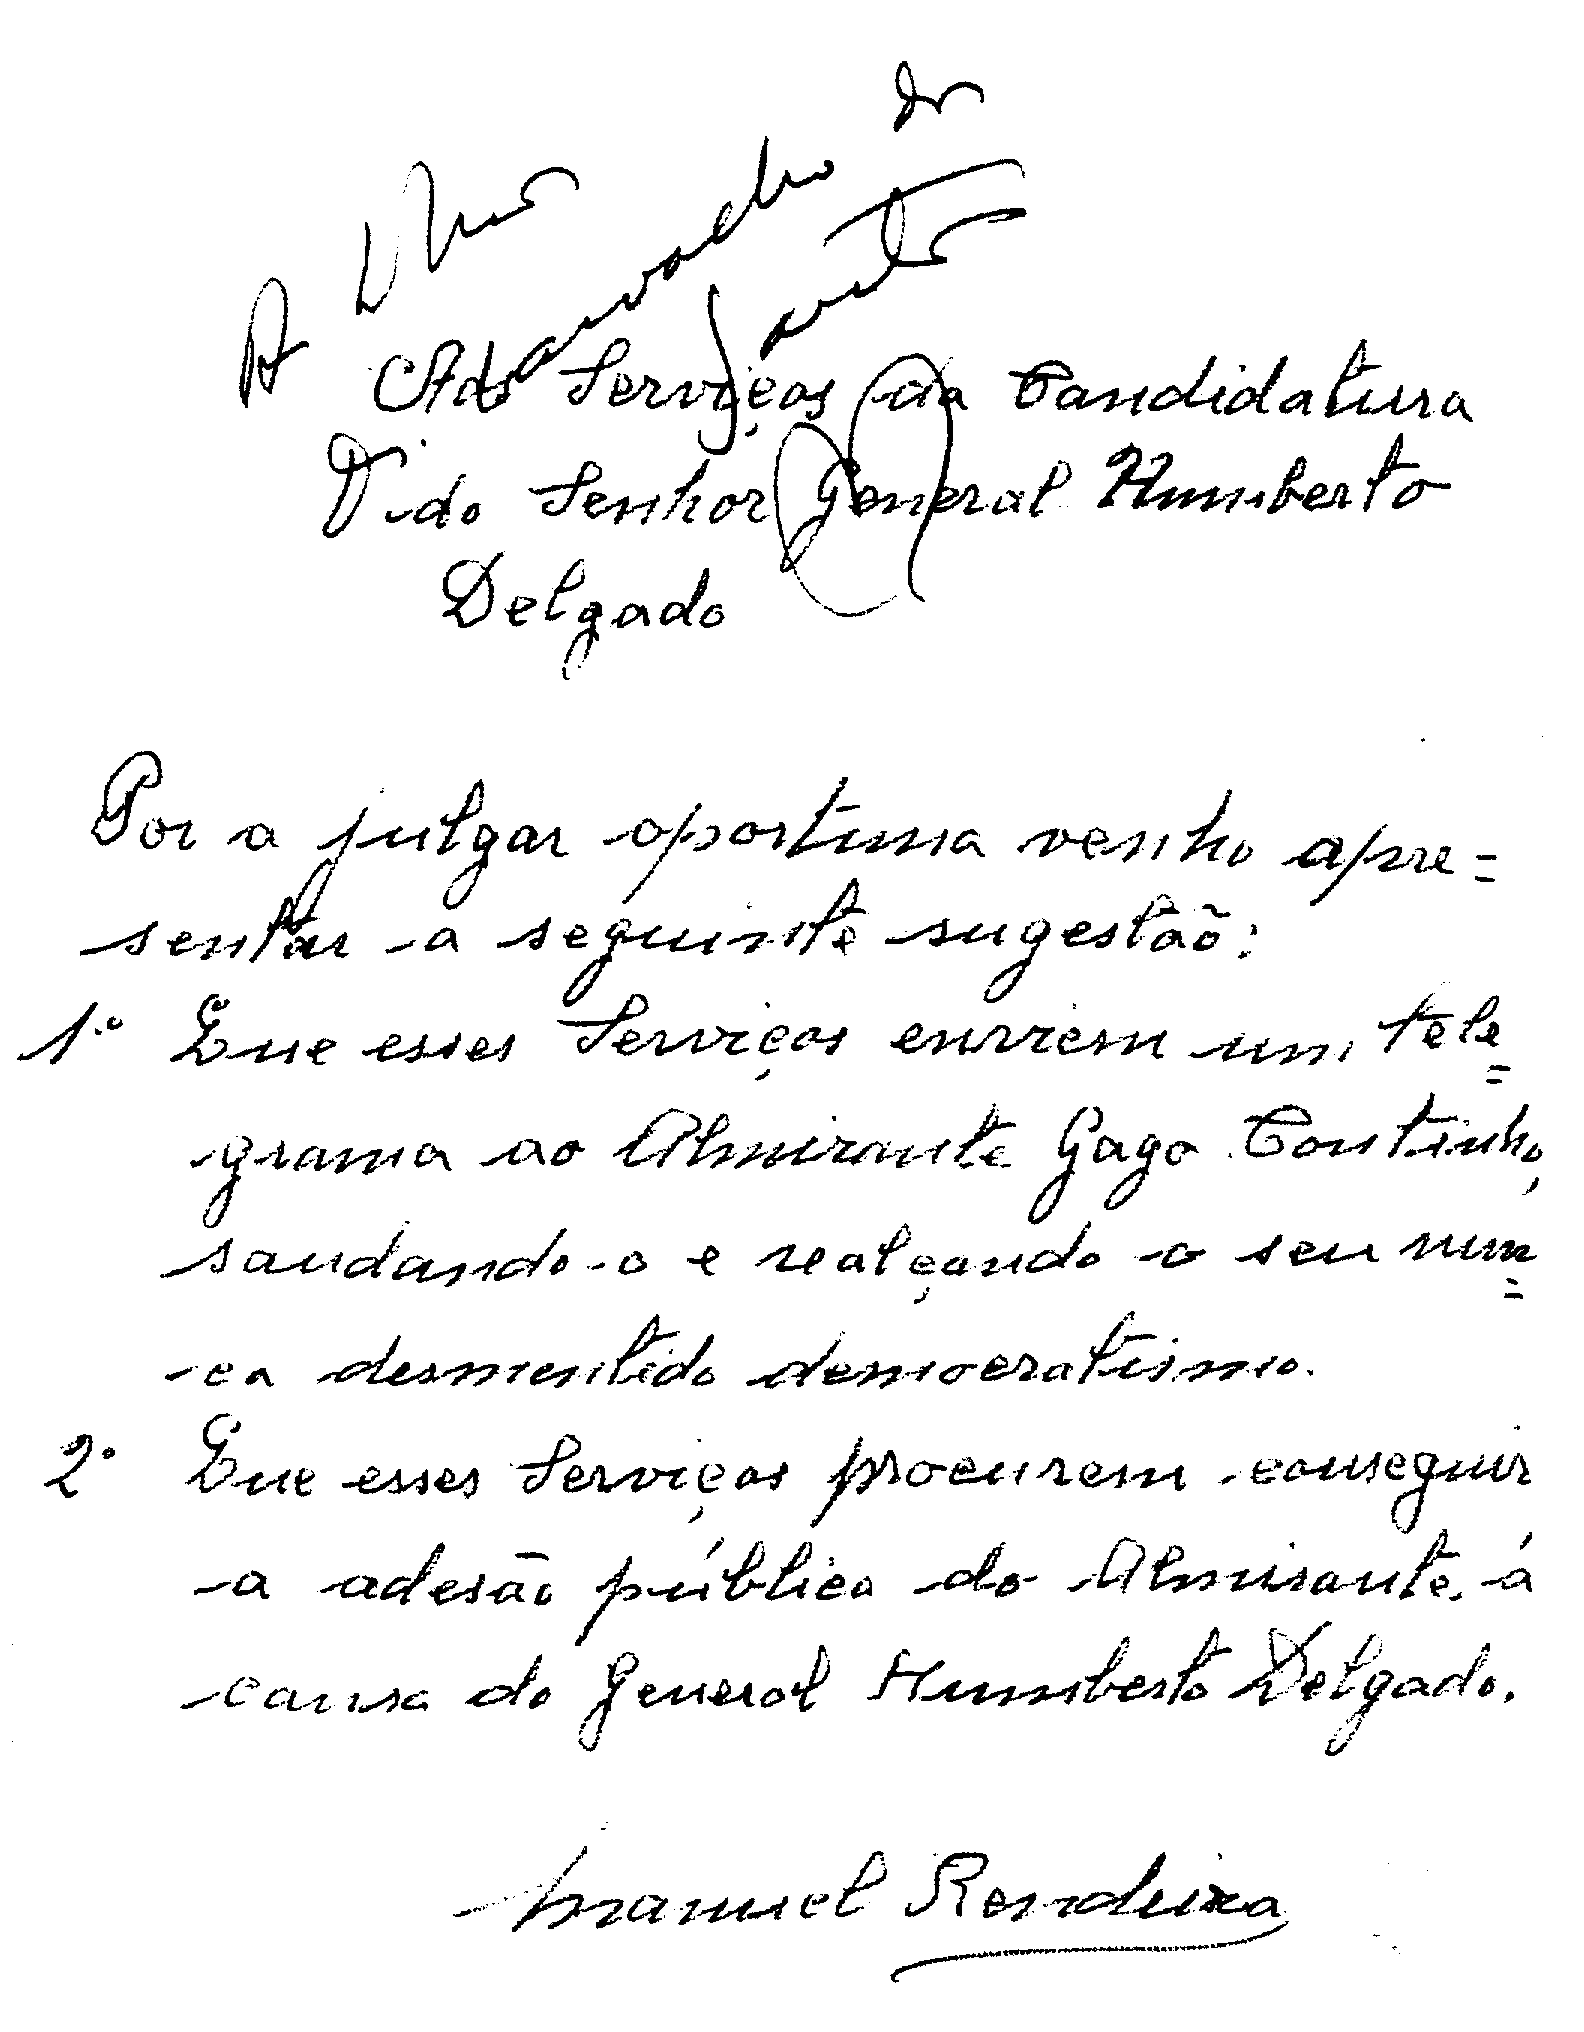 Aos Serviços da Candidatura
do Senhor General Humberto
Delgado
Por a julgar oportuna venho apre=
sentar a seguinte sugestão:
1º Que esses Serviços enviem um tele=
grama ao Almirante Gago Coutinho,
saudando-o e realçando o seu nun=
ca desmentido democratismo.
2º Que esses Serviços procurem conseguir
a adesão pública do Almirante à
causa do General Humberto Delgado.
Manuel Rendeiro